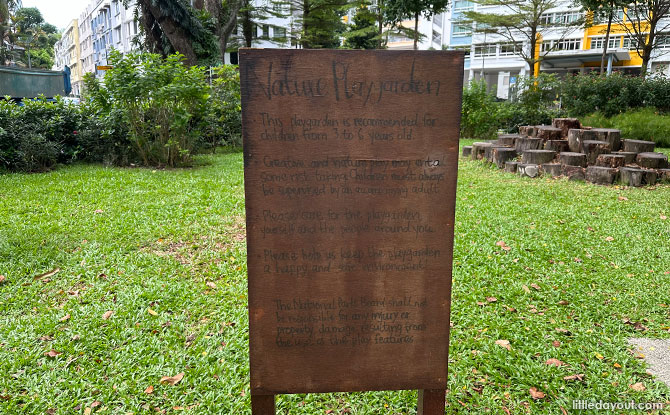 Nature Playgarden
• This playgarden is recommended for
children from 3 to 6 years old.
• Creative and nature play may entail
some risk taking. Children must always
be supervised by an accompanying adult.
• Please care for the playgarden,
yourself and the people around you.
• Please help us keep the playgarden
a happy and safe environment.
The National Parks Board shall not
be responsible for any injury or
property damage resulting from
the use of the play features.
littledayout.com